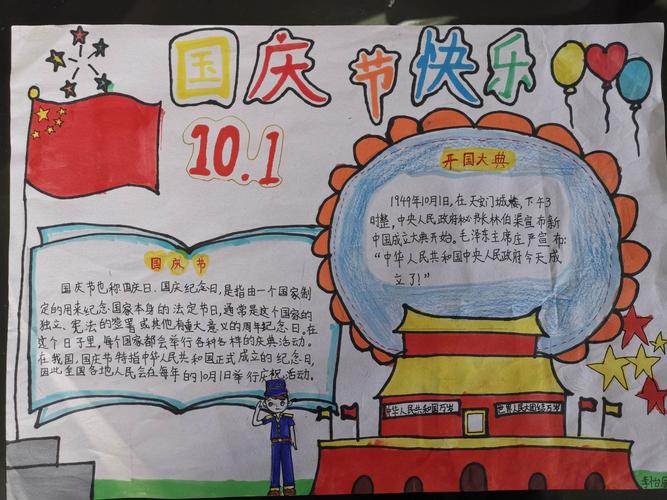 国庆节快乐
10.1
国庆节
国庆节也称国庆日、国庆纪念日,是指由一个国家制
定的用来纪念国家本身的法定节日,通常是这个国家的
独立、宪法的签署或其他有重大意义的周年纪念日。在
这个日子里,每个国家都会举行各种各样的庆典活动。
在我国,国庆节特指中华人民共和国正式成立的纪念日,
因此全国各地人民会在每年的10月1日举行庆祝活动。
开国大典
1949年10月1日,在天安门城楼,下午3
时整,中央人民政府秘书长林伯渠宣布新
中国成立大典开始。毛泽东主席庄严宣布:
“中华人民共和国中央人民政府今天成
立了!”
中华人民共和国万岁
世界人民大团结万岁
李怡